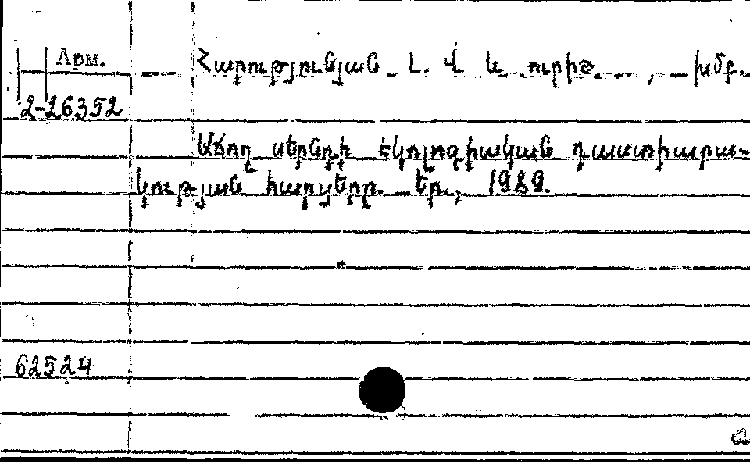 Арм.
Հարությունյան Լ. Վ և ուրիշ. , խմբ.
2-26352
Աճող սերնդի էկոլոգիական դաստիարա-
կության հարցերը. Եր., 1989.
62524